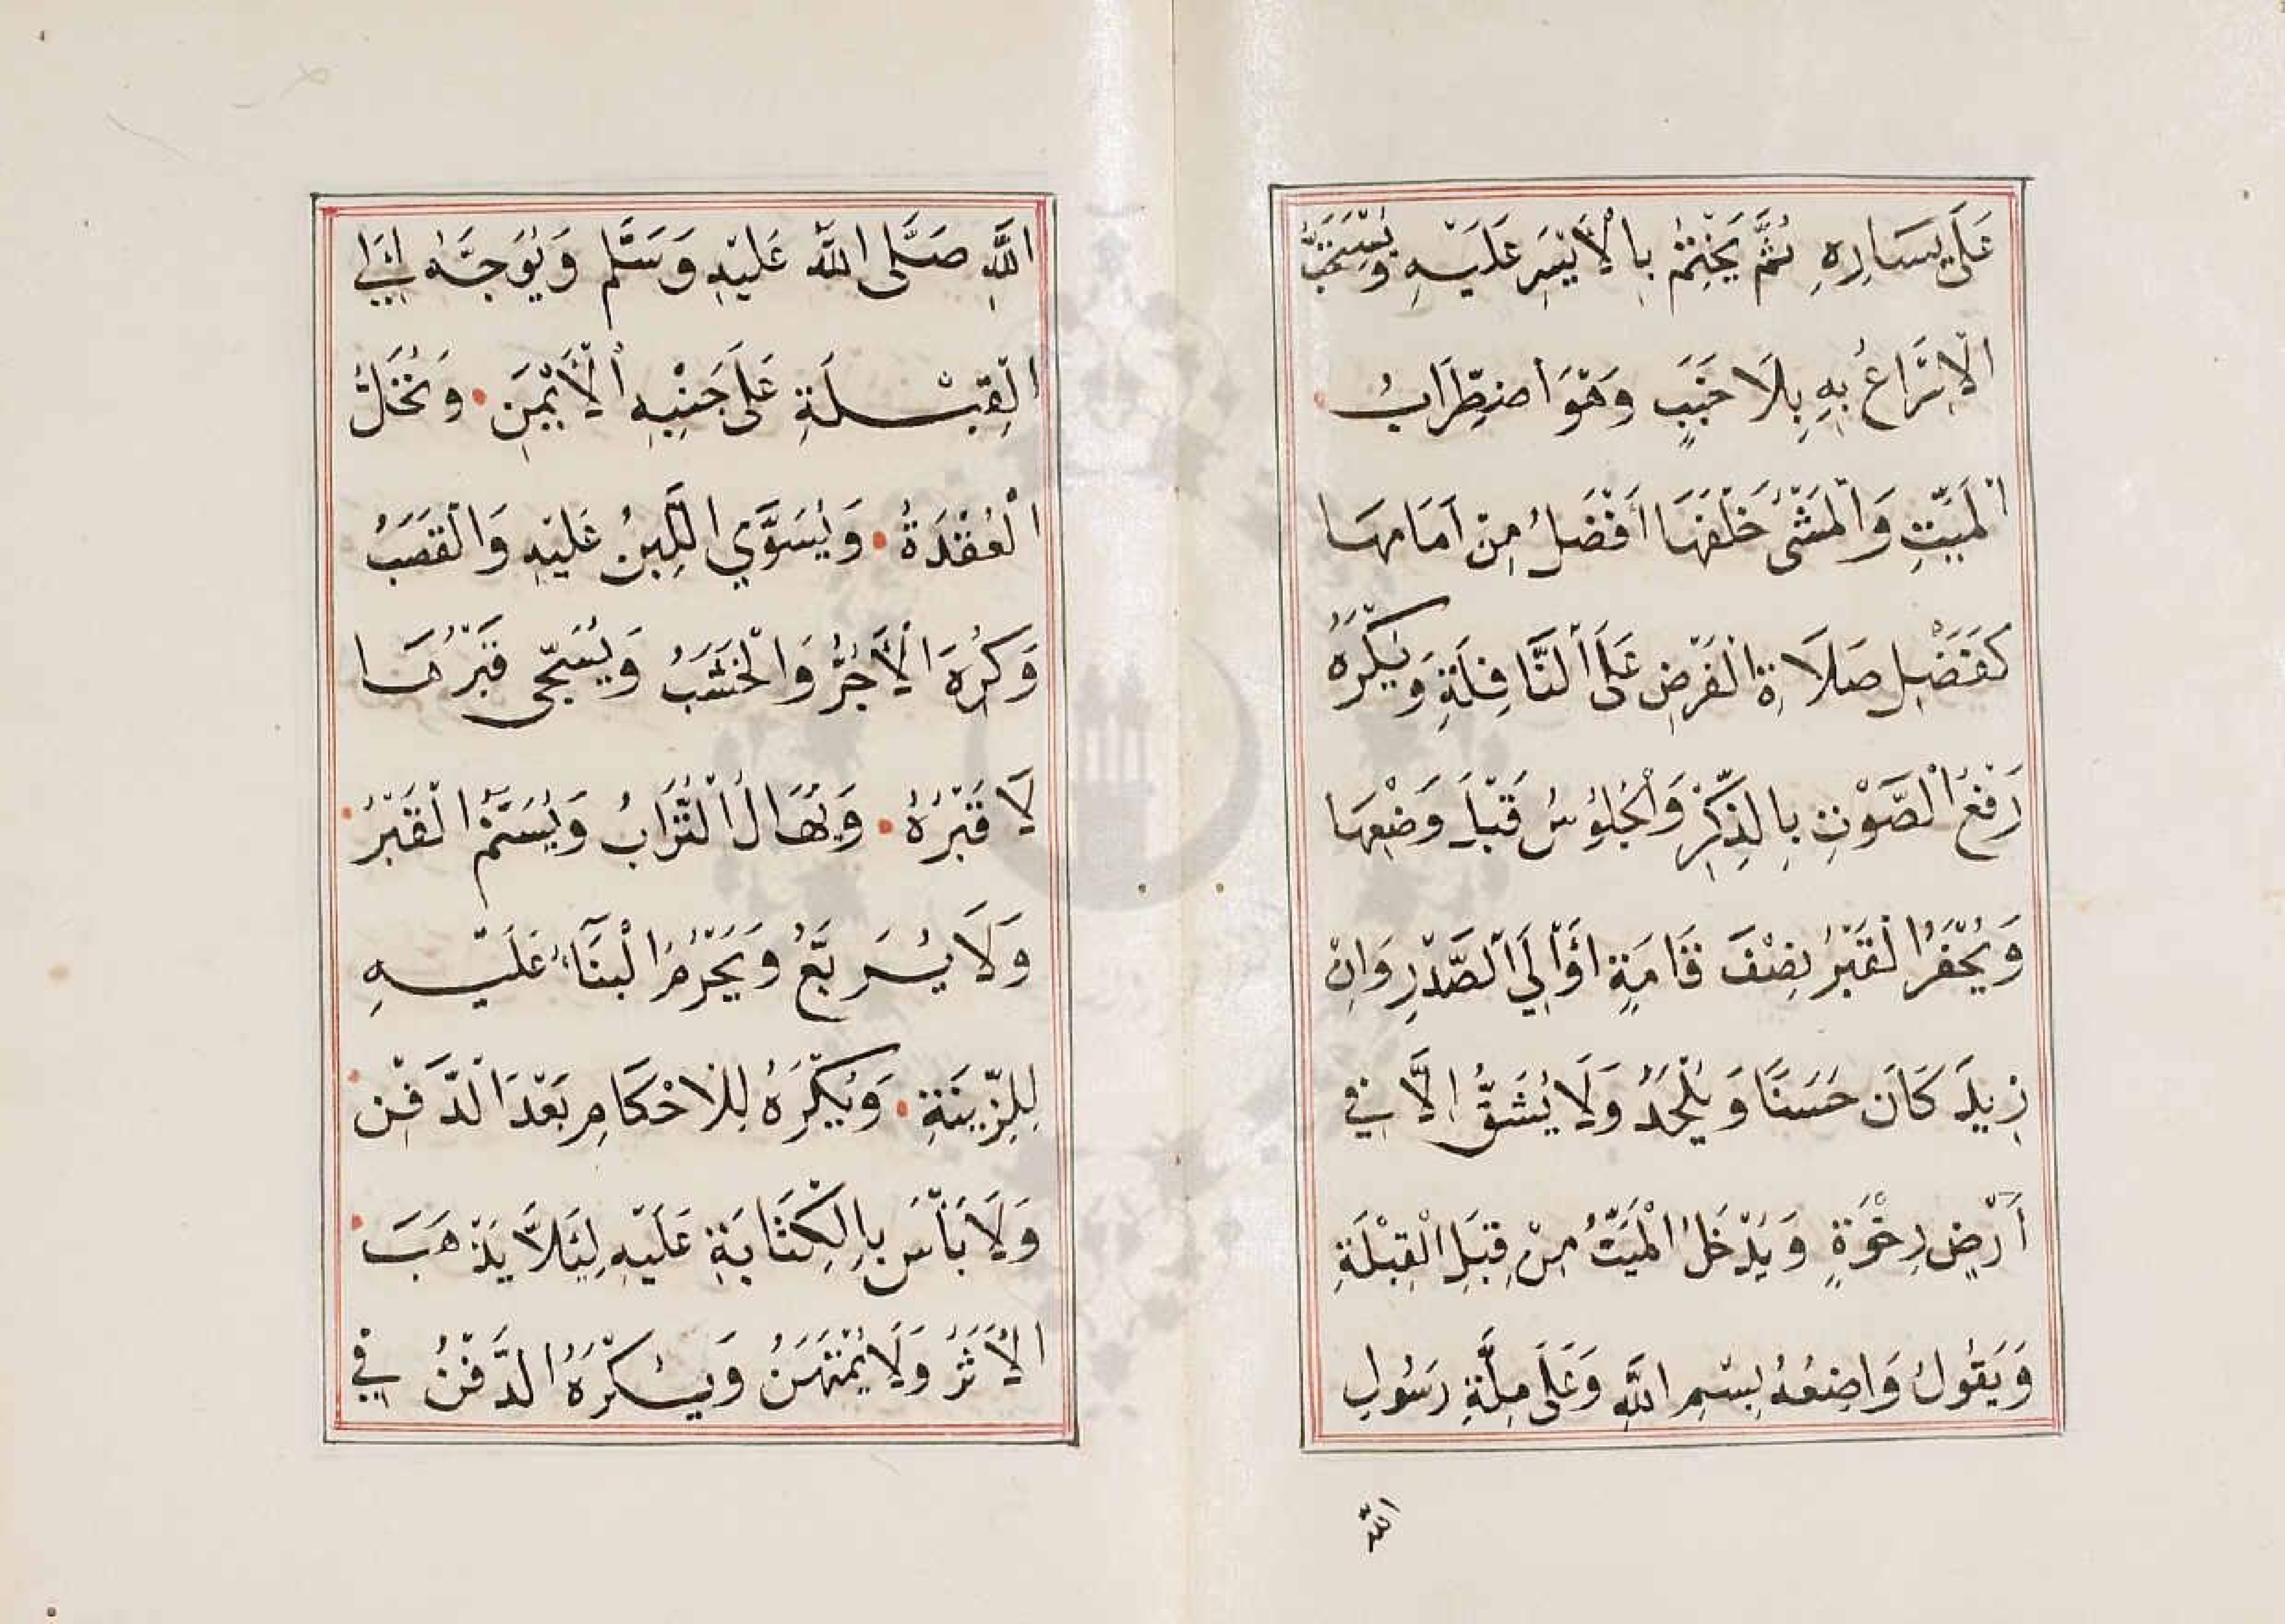 عَلَى يَسَارِهِ ثُمَّ يَخْتِمُ بِالْأَيْسَرِ عَلَيْهِ وَيُسْتَحَبُّ
الْاِسْرَاعُ بِهِ بِلَا خَبَبٍ وَهُوَ اضْطِرَابُ
الْمَيِّتِ وَالْمَشْيُ خَلْفَهَا أَفْضَلُ مِنْ اَمَامِهَا
كَفَضْلِ صَلَاةِ الْفَرْضِ عَلَى النَّافِلَةِ وَيُكْرَهُ
رَفْعُ الصَّوْتِ بِالذِّكْرِ وَالْجُلُوسُ قَبْلَ وَضْعِهَا
وَيُحْفَرُ الْقَبْرُ نِصْفَ قَامَةٍ اَوْ اِلَى الصَّدْرِ وَاِنْ
زِيدَ كَانَ حَسَنًا وَيُلْحَدُ وَلَا يُشَقُّ اِلَّا فِي
أَرْضٍ رِخْوَةٍ وَيُدْخَلُ الْمَيِّتُ مِنْ قِبَلِ الْقِبْلَةِ
وَيَقُولُ وَاضِعُهُ بِسْمِ اللَّهِ وَعَلَى مِلَّةِ رَسُولِ
اللّه
اللَّهِ صَلَّى اللَّهُ عَلَيْهِ وَسَلَّم وَيُوَجَّهُ اِلَى
الْقِبْلَةِ عَلَى جَنْبِهِ الْأَيْمَنِ • وَتُحَلُّ
الْعُقْدَةُ • وَيُسَوَّي اللَّبِنُ عَلَيْهِ وَالْقَصَبُ
وَكُرِهَ الْأَجُرُّ وَالْخَشَبُ وَيُسَجَّى قَبْرُهَا
لَا قَبْرُهُ • وَيُهَالُ التُّرَابُ وَيُسَنَّمُ الْقَبْرُ •
وَلَا يُرَبَّعُ وَيَحْرُمُ الْبِنَآءُ عَلَيْهِ
لِلزِّينَةِ • وَيُكْرَهُ لِلْاحْكَامِ بَعْدَ الدَّفْنِ •
وَلَا بَأْسَ بِالْكِتَابَةِ عَلَيْهِ لِئَلَّا يَذْهَبَ •
الْأَثَرُ وَلَا يُمْتَهَنُ وَيُكْرَهُ الدَّفْنُ فِي